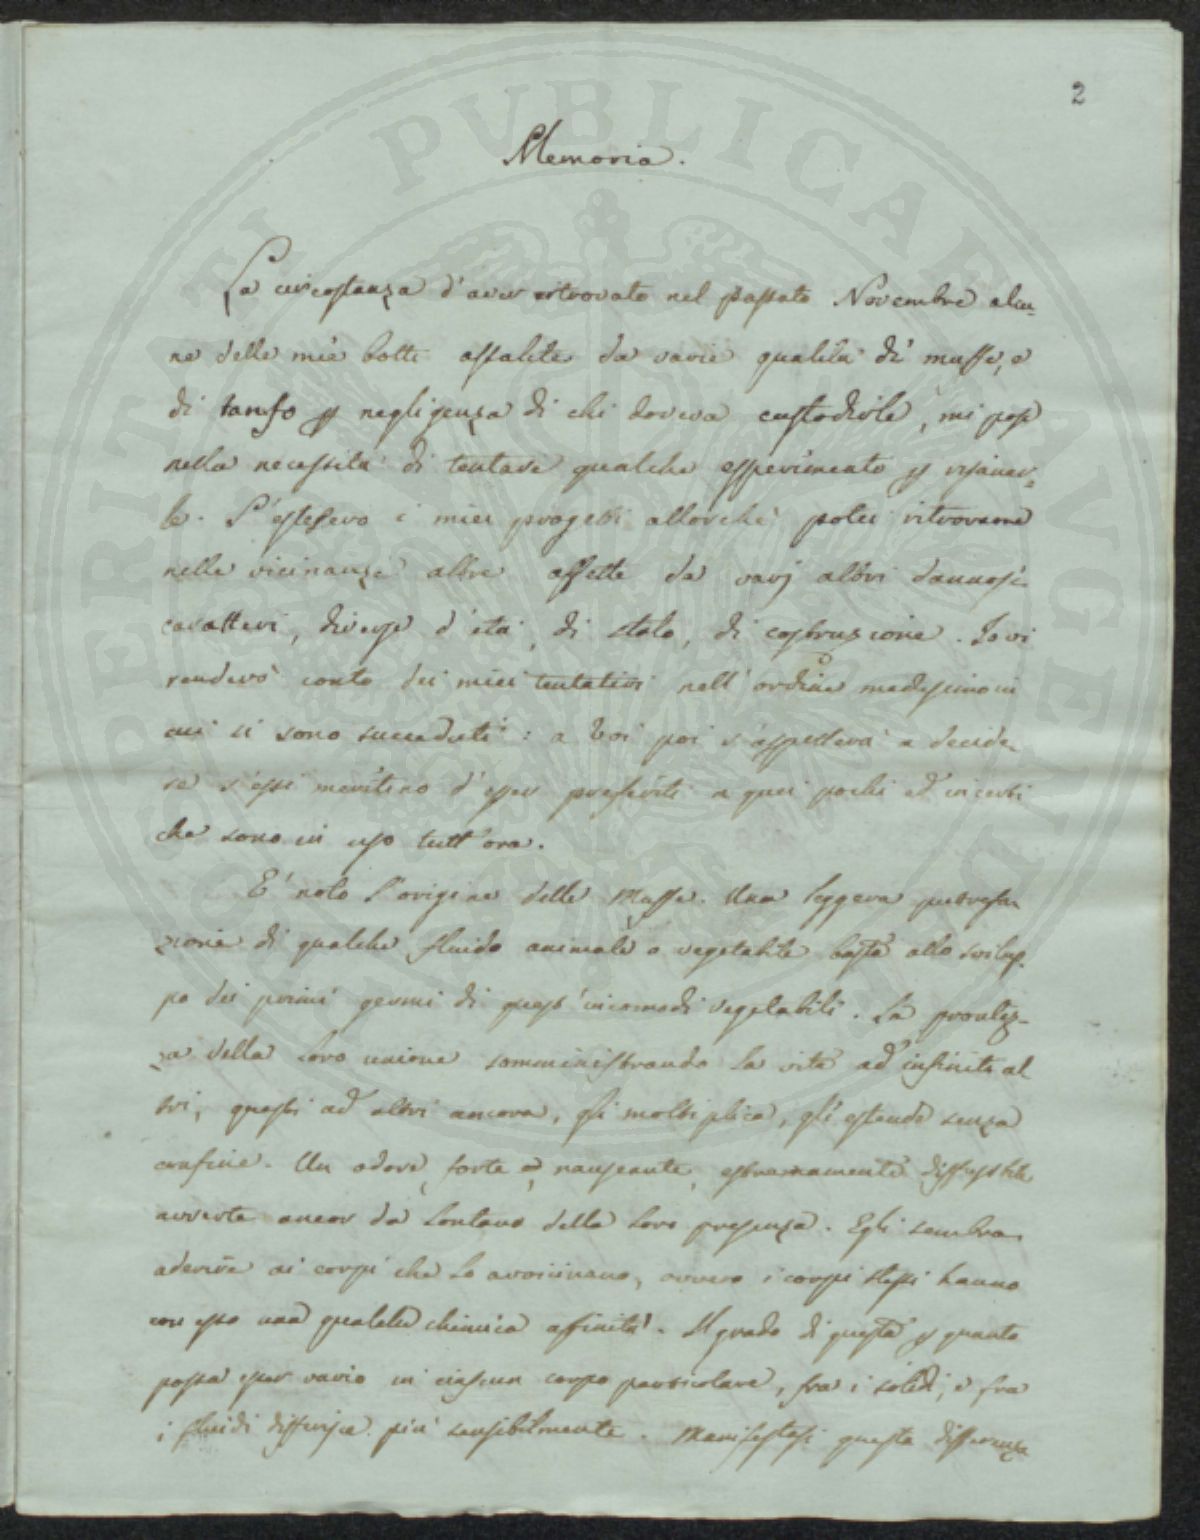 2
Memoria.
La circostanza d'aver ritrovato nel passato Novembre alcu-
ne delle mie botti assalite da varie qualità di muffe, e
di tanfo p negligenza di chi doveva custodirle, mi pose
nella necessità di tentare qualche esperimento p risanar-
le. S'estesero i miei progetti allorchè potei ritrovarne
nelle vicinanze altre affette da varj altri dannosi
caratteri, diverse d'età, di stato, di costruzione. Io vi
renderò conto dei miei tentativi nell'ordine medesimo in
cui si sono succeduti: a Voi poi s'aspetterà a decide-
re s'essi meritino d'esser preferiti a quei pochi ed incerti
che sono in uso tutt'ora.
E' noto l'origine delle Muffe. Una leggera putrefa-
zione di qualche fluido animale o vegetabile basta allo svilup-
po dei primi germi di quest'incomodi vegetabili. La prontez-
za della loro unione somministrando la vita ad infiniti al-
tri, questi ad altri ancora, gli moltiplica, gli estende senza
confine. Un odore, forte, e, nauseante, estremamente
avverte ancor da lontano della loro presenza. Egli sembra
aderire ai corpi che lo avvicinano, ovvero i corpi stessi hanno
con esso una qualche chimica affinità. Il grado di questa p quanto
possa esser vario in ciascun corpo particolare, fra i solidi, e fra
i fluidi differisce più sensibilmente. Manifestasi questa differenza